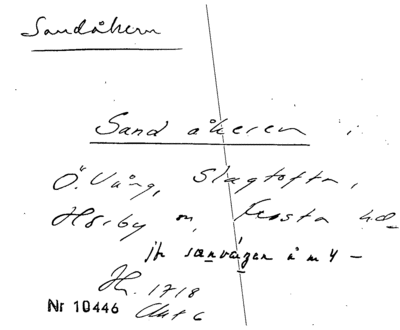 Sandåkern
Sand åkeren i
Ö. Vång, Slagtofta,
Hörby sn, Frosta hd
jfr sanvågen å m 4 -
Hh. 1718
Nr 10446 Akt 6